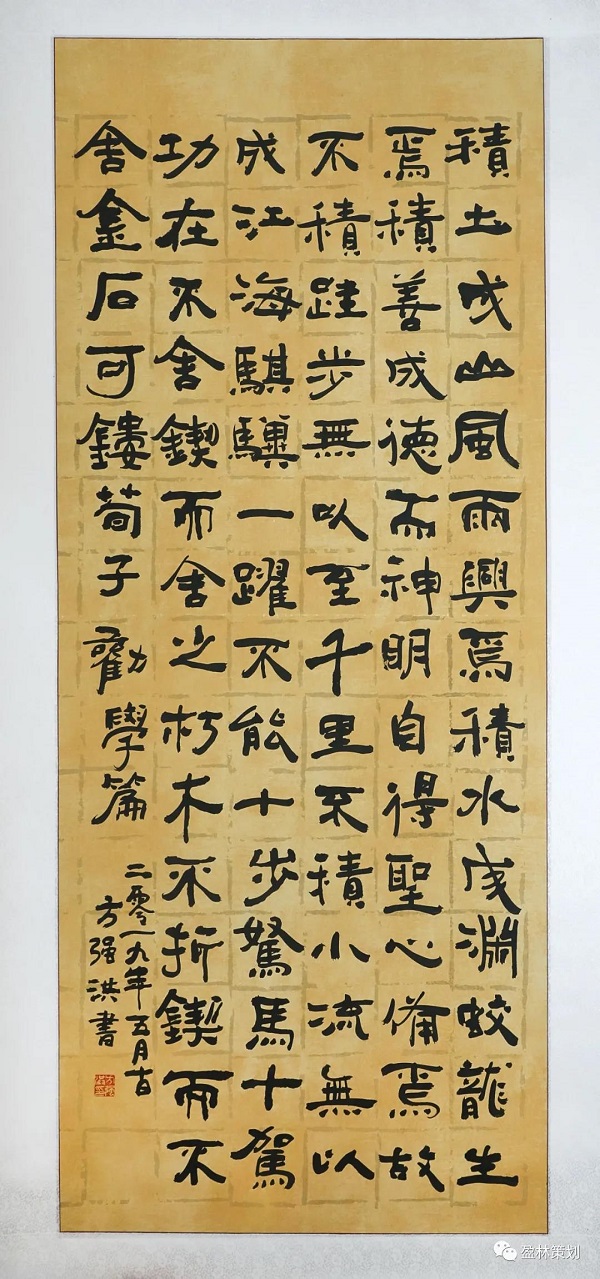 積土成山風雨興焉積水成淵蛟龍生
焉積善成德而神明自得聖心備焉故
不積跬步無以至千里不積小流無以
成江海騏驥一躍不能十步駑馬十駕
功在不舍鍥而舍之朽木不折鍥而不
舍金石可鏤荀子勸學篇
二零一九年五月
方强洪書
盈林策划